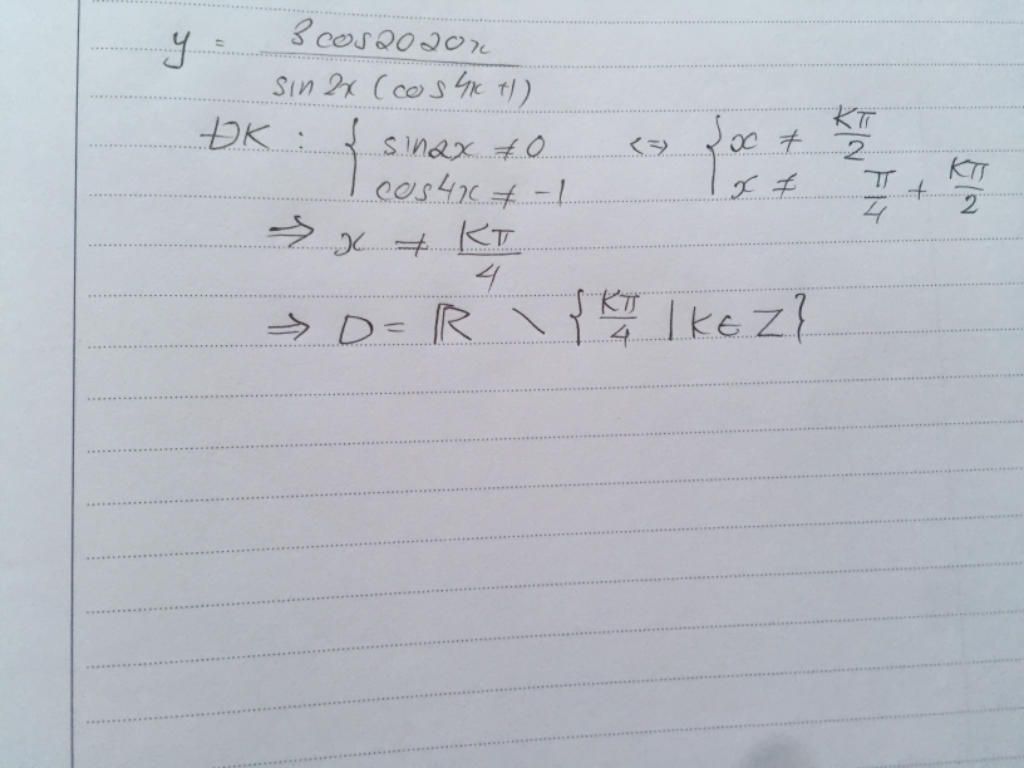 y = 3cos2020x / sin2x (cos4x +1)
ĐK : { sin2x ≠ 0 <=> { x ≠ Kπ/2
cos4x ≠ -1 x ≠ π/4 + Kπ/2
=> x ≠ Kπ/4
=> D = ℝ \ { Kπ/4 | K ∈ Z }